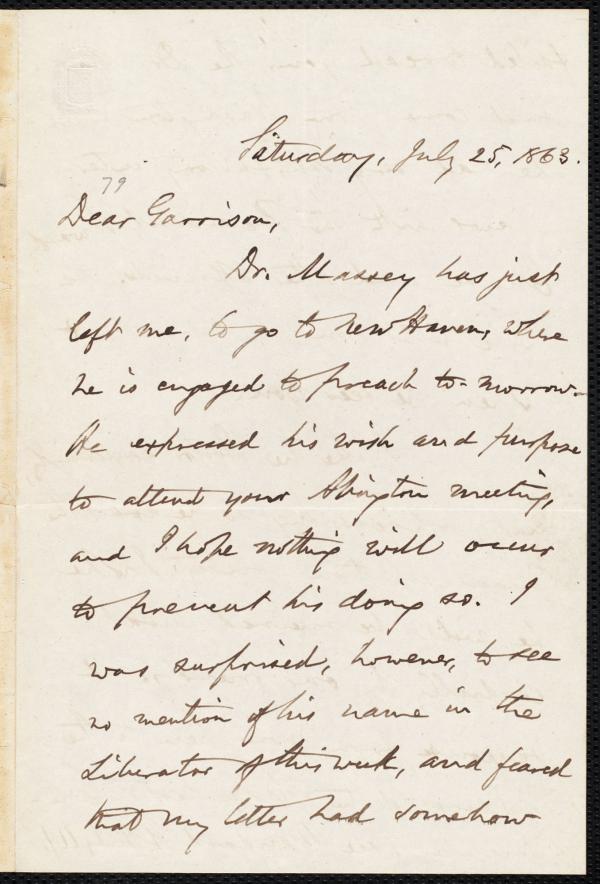 Saturday, July 25, 1863.
79
Dear Garrison,
Dr. Massey has just
left me, to go to New Haven, where
he is engaged to preach to-morrow.
He expressed his wish and purpose
to attend your Abington meeting,
and I hope nothing will occur
to prevent his doing so. I
was surprised, however, to see
no mention of his name in the
Liberator of this week, and feared
that my letter had somehow